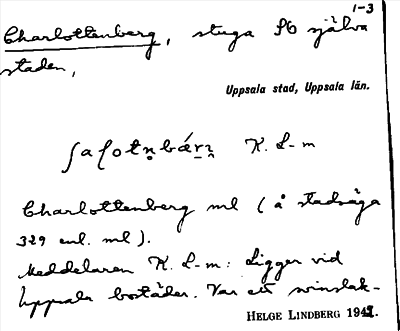 1-3
Charlottenberg, stuga på själva
staden,
Uppsala stad, Uppsala län.
ʃaʃotn̥bǽrɲ K. L-m
Charlottenberg ml (å stadsäga
329 enl. ml).
Meddelaren K. L-m: Ligger vid
Uppsala bostäder. Var ett
HELGE LINDBERG 1941.